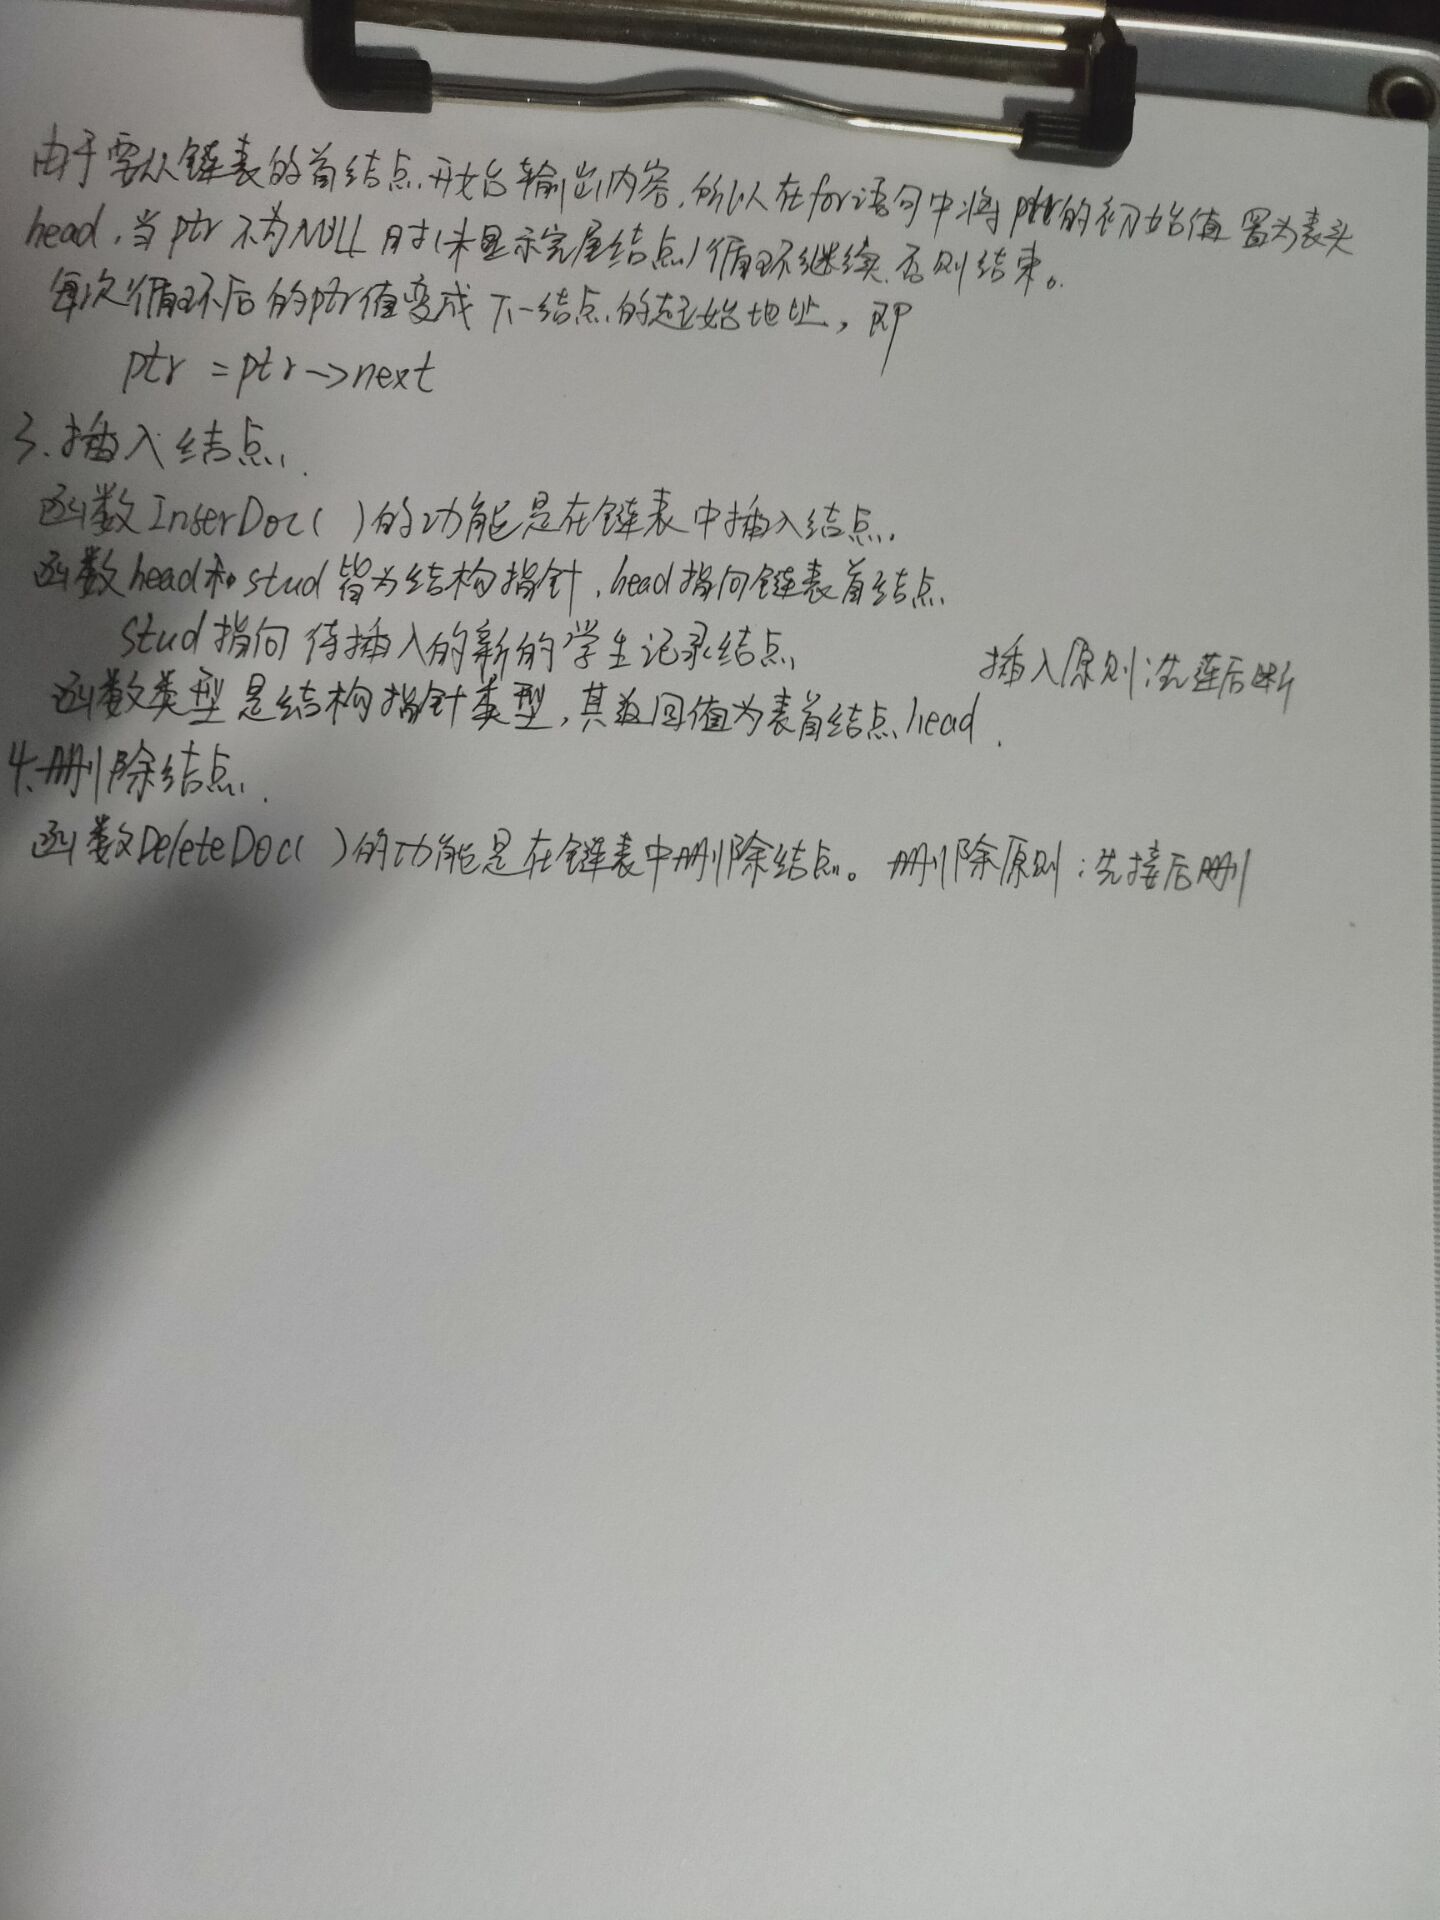 由于需从链表的首结点开始输出内容，所以在for语句中将ptr的初始值置为表头
head，当ptr不为NULL时(未显示完尾结点)循环继续，否则结束。
每次循环后的ptr值变成下一结点的起始地址，即
ptr = ptr->next
3.插入结点.
函数InserDoc( )的功能是在链表中插入结点.
函数head和stud皆为结构指针，head指向链表首结点
stud指向待插入的新的学生记录结点
插入原则:先莲后断
函数类型是结构指针类型，其返回值为表首结点head.
4.删除结点.
函数DeleteDoc( )的功能是在链表中删除结点。删除原则:先接后删